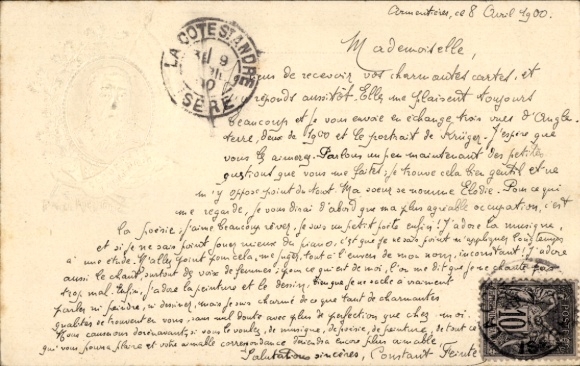 Armentières, ce 8 Avril 1900.
Mademoiselle,
LA COTE ST ANDRE
ISERE
de recevoir vos charmantes cartes, et
réponds aussitôt. Elles me plaisent toujours
beaucoup et je vous envoie en échange trois vues d'Angle-
terre, deux de 1900 et le portrait de Krüger. J'espère que
vous les aimerez. Parlons un peu maintenant des petites
questions que vous me faites; je trouve cela bien gentil et ne
m'y oppose point du tout. Ma soeur se nomme Elodie. Pour ce qui
me regarde, je vous dirai d'abord que ma plus agréable occupation, c'est
la poésie; j'aime beaucoup rêver, je suis un petit poète enfin! J'adore la musique,
et si je ne sais point jouer mieux du piano, c'est que je ne sais point m'appliquer longtemps
à une étude. N'allez point pour cela, me juger, tout à l'envers de mon nom, inconstant! J'adore
aussi le chant surtout des voix de femmes; pour ce qui est de moi, l'on me dit que je ne chante pas
trop mal. Enfin, j'adore la peinture et le dessin, bien que je ne sache à vraiment
parler ni peindre, ni dessiner, mais je suis charmé de ce que tant de charmantes
qualités se trouvent en vous, sans nul doute avec plus de perfection que chez moi.
Nous causerons dorénavant, si vous le voulez, de musique, de poésie, de peinture, de tout ce
qui pourra plaire et votre aimable correspondance deviendra encore plus aimable.
Salutations sincères, Constant Feinte
10